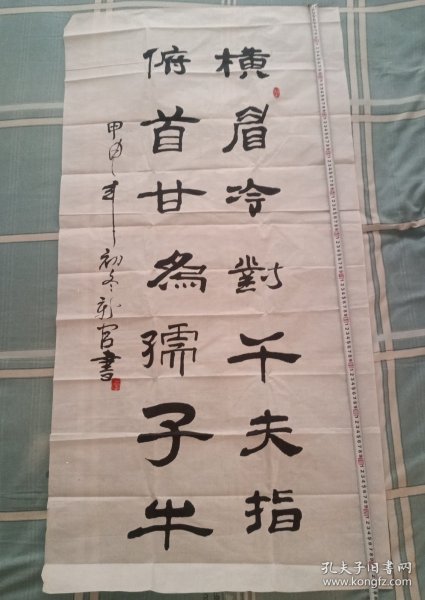 橫眉冷對千夫指
俯首甘為孺子牛
甲申年初冬新宮書
孔夫子旧书网
www.kongfz.com